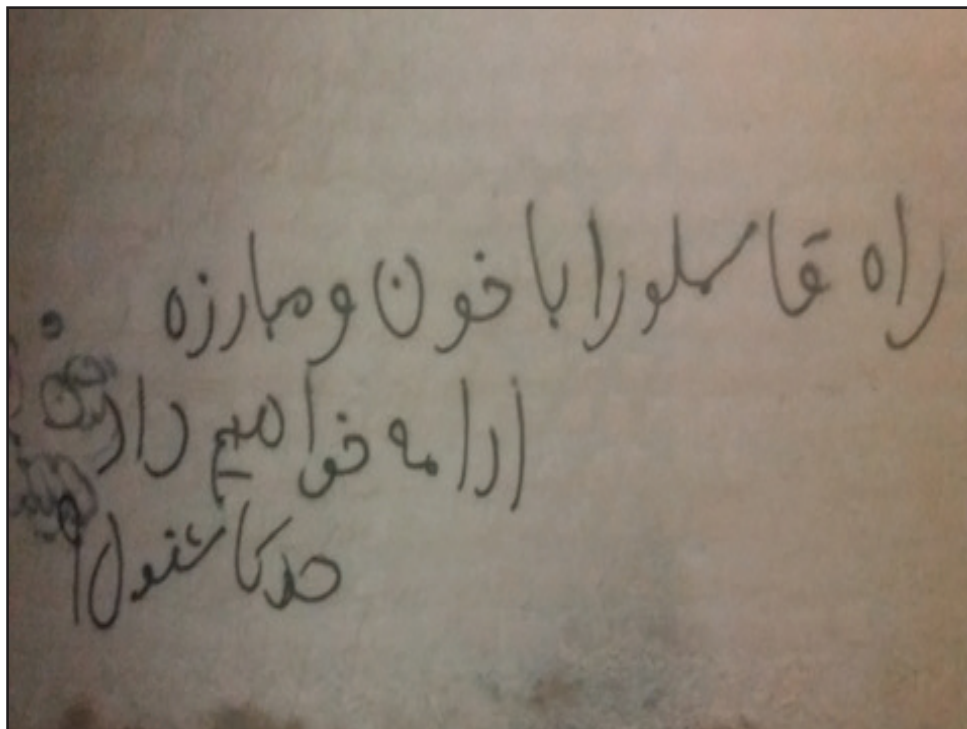 راه قاسملو را با خون و مبارزه
ادامه خواهیم داد
حدکا شنو